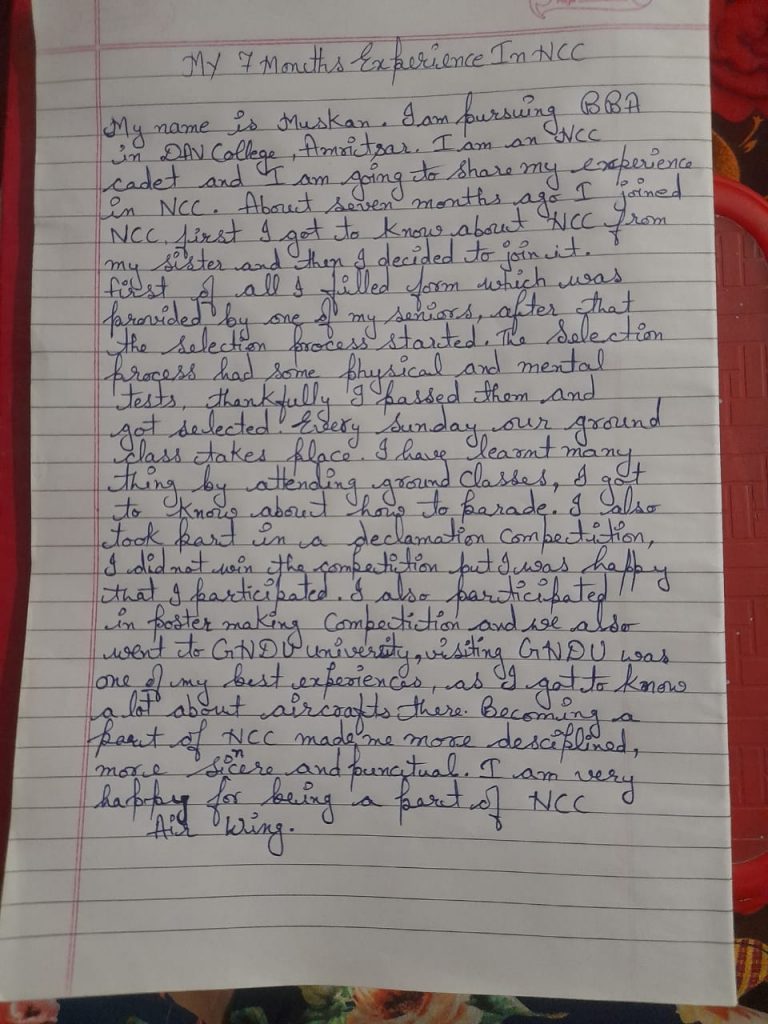 My 7 Months Experience In NCC
My name is Muskan. I am pursuing BBA
in DAV College, Amritsar. I am an NCC
cadet and I am going to share my experience
in NCC. About seven months ago I joined
NCC, first I got to know about NCC from
my sister and then I decided to join it.
first of all I filled form which was
provided by one of my seniors, after that
the selection process started. The selection
process had some physical and mental
tests, thankfully I passed them and
got selected! Every sunday our ground
class takes place. I have learnt many
thing by attending ground classes, I got
to know about how to parade. I also
took part in a declamation compectition,
I did not win the compectition but I was happy
that I participated. I also participated
in poster making Compectiction and we also
went to GNDU university, visiting GNDU was
one of my best experiences, as I got to know
a lot about aircrafts there. Becoming a
part of NCC made me more desciplined,
more sincere and punctual. I am very
happy for being a part of NCC
Air Wing.